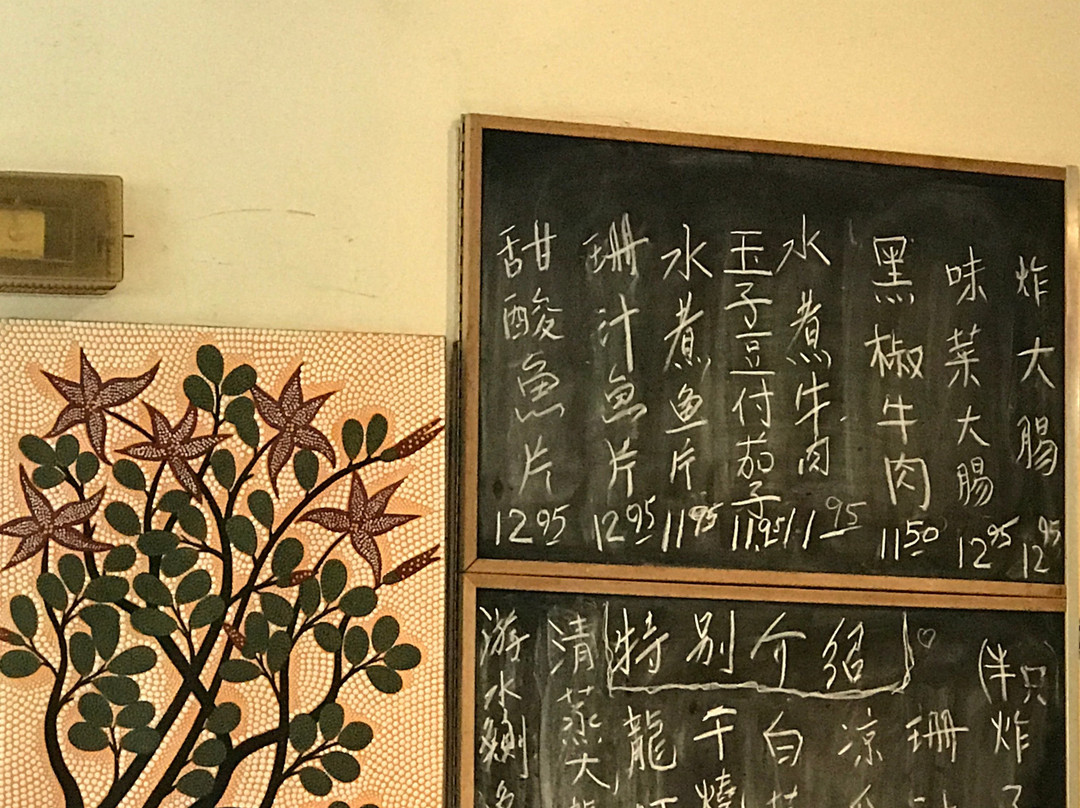 炸大腸 12 95
味菜大腸 12 95
黑椒牛肉 11 50
水煮牛肉 11 95
玉子豆付茄子 11.95
水煮鱼片 11 95
珊汁魚片 12 95
甜酸魚片 12 95
特别介绍
(半只)
炸
珊
凉
白
干燒
龍
清蒸大
游水